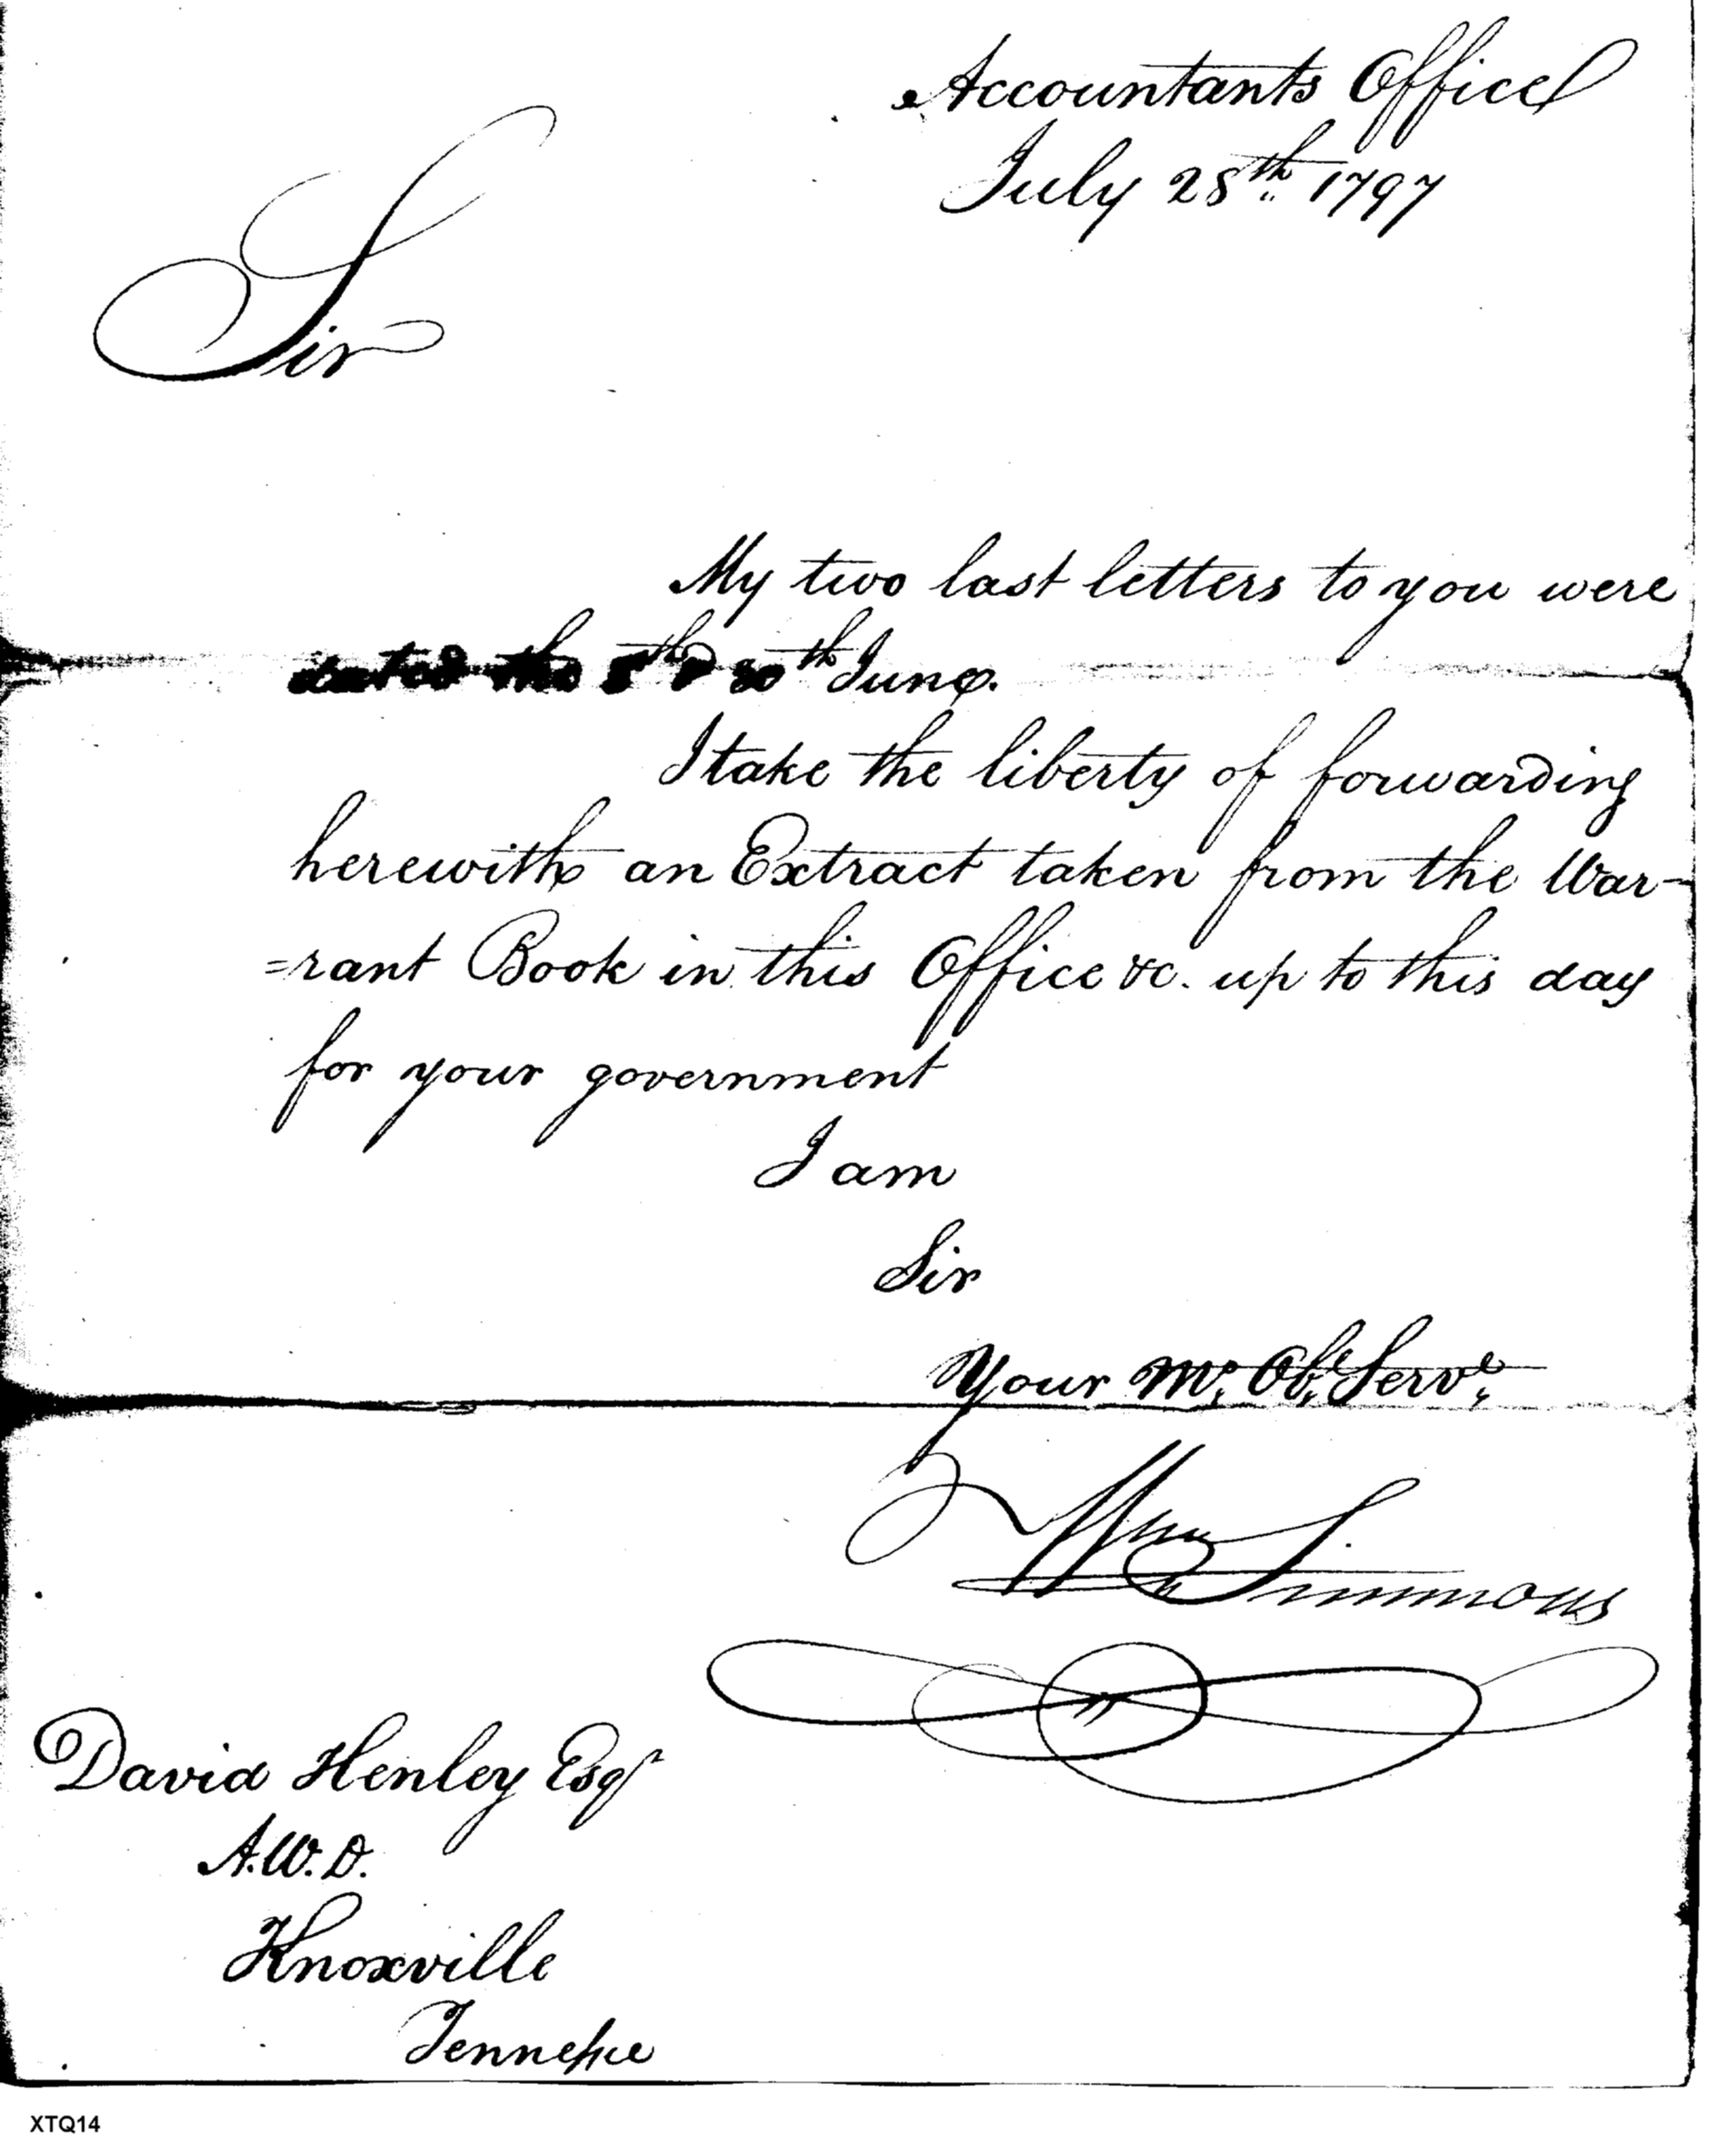 Accountants Office
July 28th 1797
Sir
My two last letters to you were
dated the 8th & 30th June.
I take the liberty of forwarding
herewith an Extract taken from the War-
=rant Book in this Office &c. up to this day
for your government
I am
Sir
Your Mo. Obt. Servt.
Wm Simmons
David Henley Esqr
A.W.D.
Knoxville
Tenneſsee
XTQ14